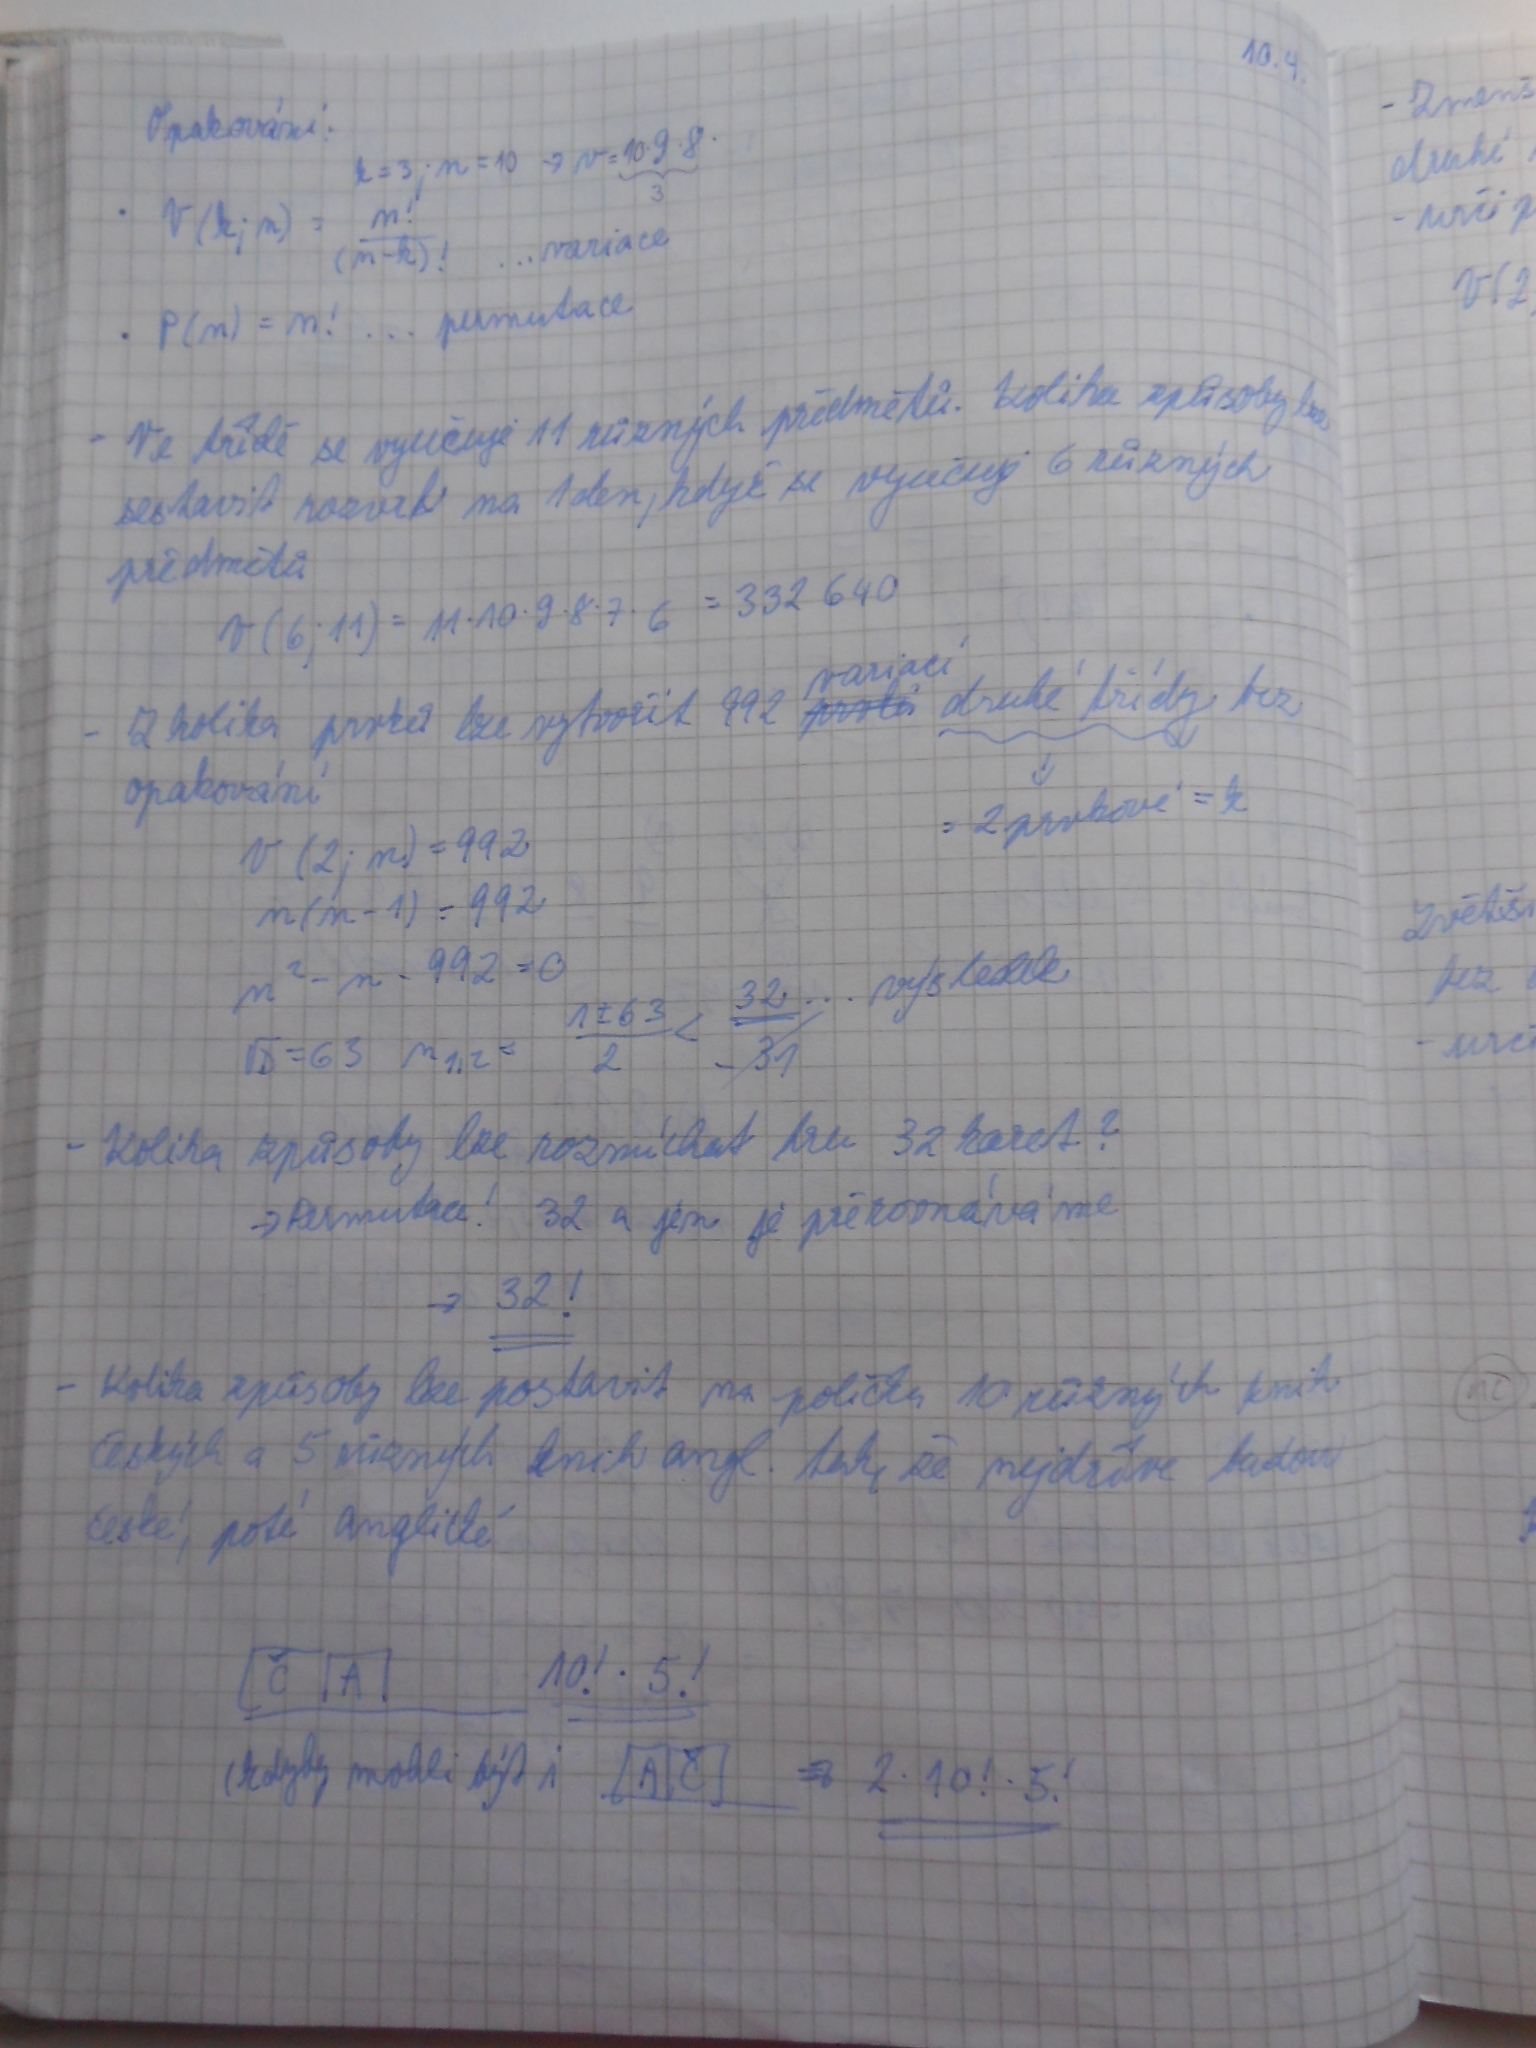 10.4.
Opakování:
k=3; n=10 → v=10·9·8·
3
· V(k;n) = n!/(n-k)! ...variace
· P(n) = n! ... permutace
- Ve třídě se vyučuje 11 různých předmětů. Kolika způsoby lze
sestavit rozvrh na 1 den, když se vyučují 6 různých
předmětů
V(6;11) = 11·10·9·8·7·6 = 332 640
variací
- Z kolika prvků lze vytvořit 992 druhé třídy bez
opakování
= 2 prvkové = k
V(2;n) = 992
n(n-1) = 992
n² - n - 992 = 0
√D = 63 n1,2 = 1±63/2 < 32 ... výsledek
-31
- Kolika způsoby lze rozmíchat hru 32 karet?
→ Permutace! 32 a jen je přerovnáváme
→ 32!
- Kolika způsoby lze postavit na poličku 10 různých knih
českých a 5 různých knih angl. tak, že nejdříve budou
české, poté anglické
Č A 10! · 5!
(kdyby mohli být i A Č ⇒ 2·10!·5!
- Zmenš
druhé
- urči p
V(2,
Zvětší
bez
- urč